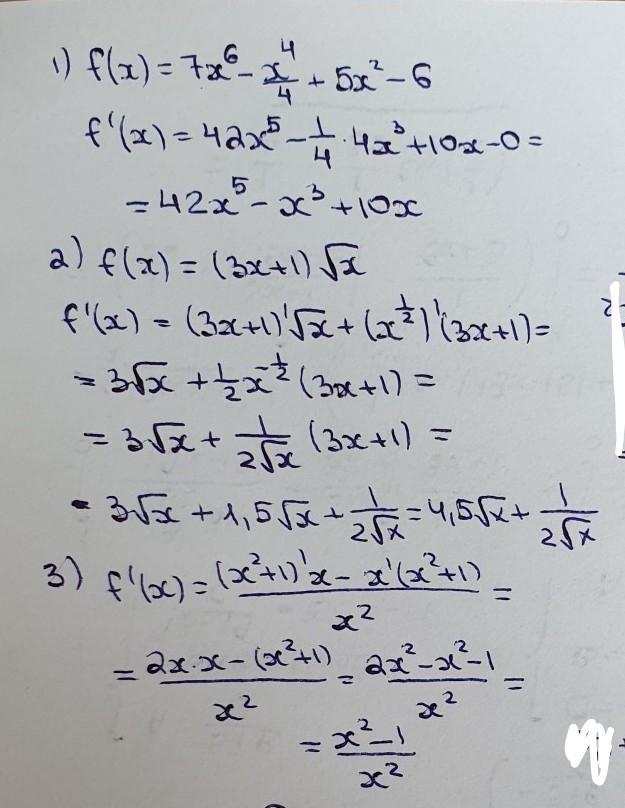 1) f(x) = 7x⁶ - x⁴/4 + 5x² - 6
f'(x) = 42x⁵ - 1/4 · 4x³ + 10x - 0 =
= 42x⁵ - x³ + 10x
2) f(x) = (3x+1)√x
f'(x) = (3x+1)'√x + (x^(1/2))'(3x+1) =
= 3√x + 1/2 x^(-1/2) (3x+1) =
= 3√x + 1/(2√x) (3x+1) =
= 3√x + 1,5√x + 1/(2√x) = 4,5√x + 1/(2√x)
3) f'(x) = ((x²+1)'x - x'(x²+1))/x² =
= (2x·x - (x²+1))/x² = (2x² - x² - 1)/x² =
= (x² - 1)/x²